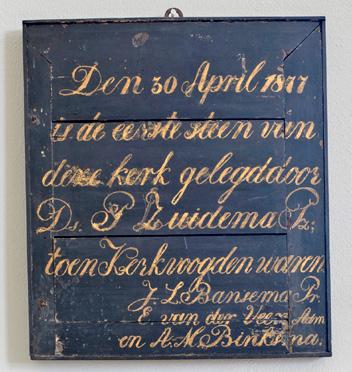 Den 30 April 1877
is de eerste steen van
deze kerk gelegd door
Ds. P Zuidema Pz;
toen Kerkvoogden waren
J. L Bansema Pr.
E van der Veen Adm
en A. M. Binksma.